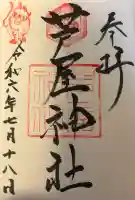 奉拝
芦屋神社
令和六年七月十八日